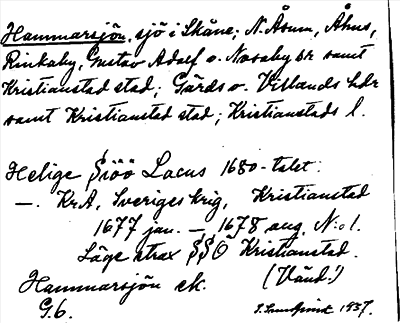 Hammarsjön, sjö i Skåne; N. Åsum, Åhus,
Rinkaby, Gustav Adolf o. Nosaby snr samt
Kristianstad stad; Gärds o. Villands hdr
samt Kristianstad stad; Kristianstads l.
Helige Siöö Lacus 1680-talet:
—. KrA, Sveriges krig, Kristianstad
1677 jan. — 1678 aug. N:o 1.
Läge strax SSÖ Kristianstad.
Hammarsjön ek. (Vänd!)
G.6. 1937.